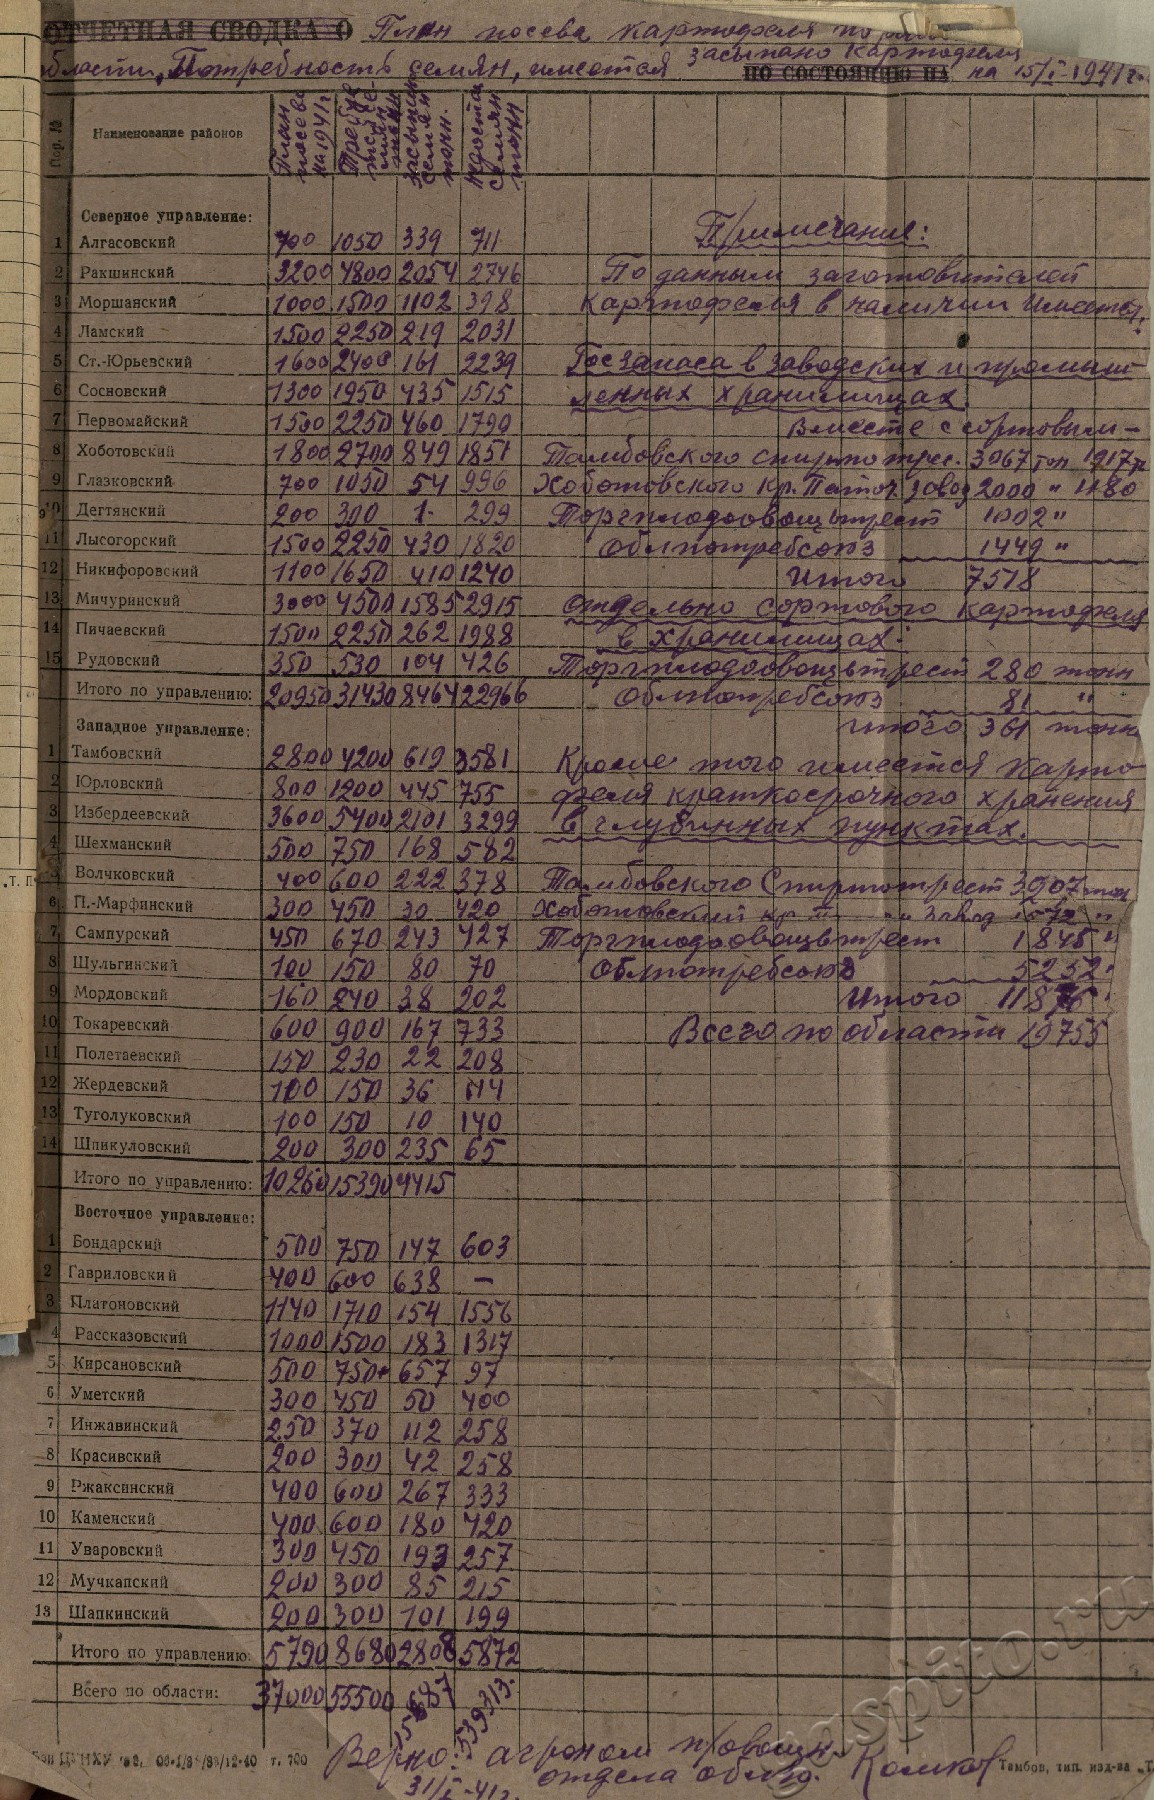 ОТЧЕТНАЯ СВОДКА О План посева картофеля по
области, Потребность семян, имеется засыпано картофеля
ПО СОСТОЯНИЮ НА на 15/I-1941 г.
Пор. № Наименование районов План посева на 1941 г. засыпано семян тонн. недостает семян тонн
Северное управление:
Примечание:
1 Алгасовский 700 1050 339 711
2 Ракшинский 3200 4800 2054 2746 По данным заготовителей
3 Моршанский 1000 1500 1102 398 картофеля в наличии имеется:
4 Ламский 1500 2250 219 2031
5 Ст.-Юрьевский 1600 2400 161 2239 Госзапаса в заводских и промыш
6 Сосновский 1300 1950 435 1515 ленных хранилищах.
7 Первомайский 1500 2250 460 1790 Вместе с сортовым-
8 Хоботовский 1800 2700 849 1851 Тамбовского спиртотрес. 3067 тон 1917 т
9 Глазковский 700 1050 54 996 Хоботовского кр. Паточ. завод 2000 " 1180
10 Дегтянский 200 300 1- 299 Торгплодоовощьтрест 1002 "
11 Лысогорский 1500 2250 430 1820 Облпотребсоюз 1449 "
12 Никифоровский 1100 1650 410 1240 Итого 7518
13 Мичуринский 3000 4500 1585 2915 отдельно сортового картофеля
14 Пичаевский 1500 2250 262 1988 в хранилищах:
15 Рудовский 350 530 104 426 Торгплодоовощьтрест 280 тонн
Итого по управлению: 20950 31430 8464 22966 Облпотребсоюз 81 "
Западное управление: итого 361 тонн
1 Тамбовский 2800 4200 619 3581 Кроме того имеется карто
2 Юрловский 800 1200 445 755 феля краткосрочного хранения
3 Избердеевский 3600 5400 2101 3299 в глубинных пунктах.
4 Шехманский 500 750 168 582
5 Волчковский 400 600 222 378 Тамбовского Спиртотрест 3207 тон
6 П.-Марфинский 300 450 30 420 Хоботовский кр. завод 1572 "
7 Сампурский 450 670 243 427 Торгплодоовощьтрест 1845 "
8 Шульгинский 100 150 80 70 Облпотребсоюз 5252 "
9 Мордовский 160 240 38 202 Итого 11876
10 Токаревский 600 900 167 733 Всего по области 19755
11 Полетаевский 150 230 22 208
12 Жердевский 100 150 36 114
13 Туголуковский 100 150 10 140
14 Шпикуловский 200 300 235 65
Итого по управлению: 10260 15390 4415
Восточное управление:
1 Бондарский 500 750 147 603
2 Гавриловский 400 600 638 —
3 Платоновский 1140 1710 154 1556
4 Рассказовский 1000 1500 183 1317
5 Кирсановский 500 750 657 97
6 Уметский 300 450 50 400
7 Инжавинский 250 370 112 258
8 Красивский 200 300 42 258
9 Ржаксинский 400 600 267 333
10 Каменский 400 600 180 420
11 Уваровский 300 450 193 257
12 Мучкапский 200 300 85 215
13 Шапкинский 200 300 101 199
Итого по управлению: 5790 8680 2808 5872
Всего по области: 37000 55500 15687
Верно: агроном
отдела
31/I-41 г.
т. 700
Тамбов, тип. изд-ва „Т.
gaspito.ru